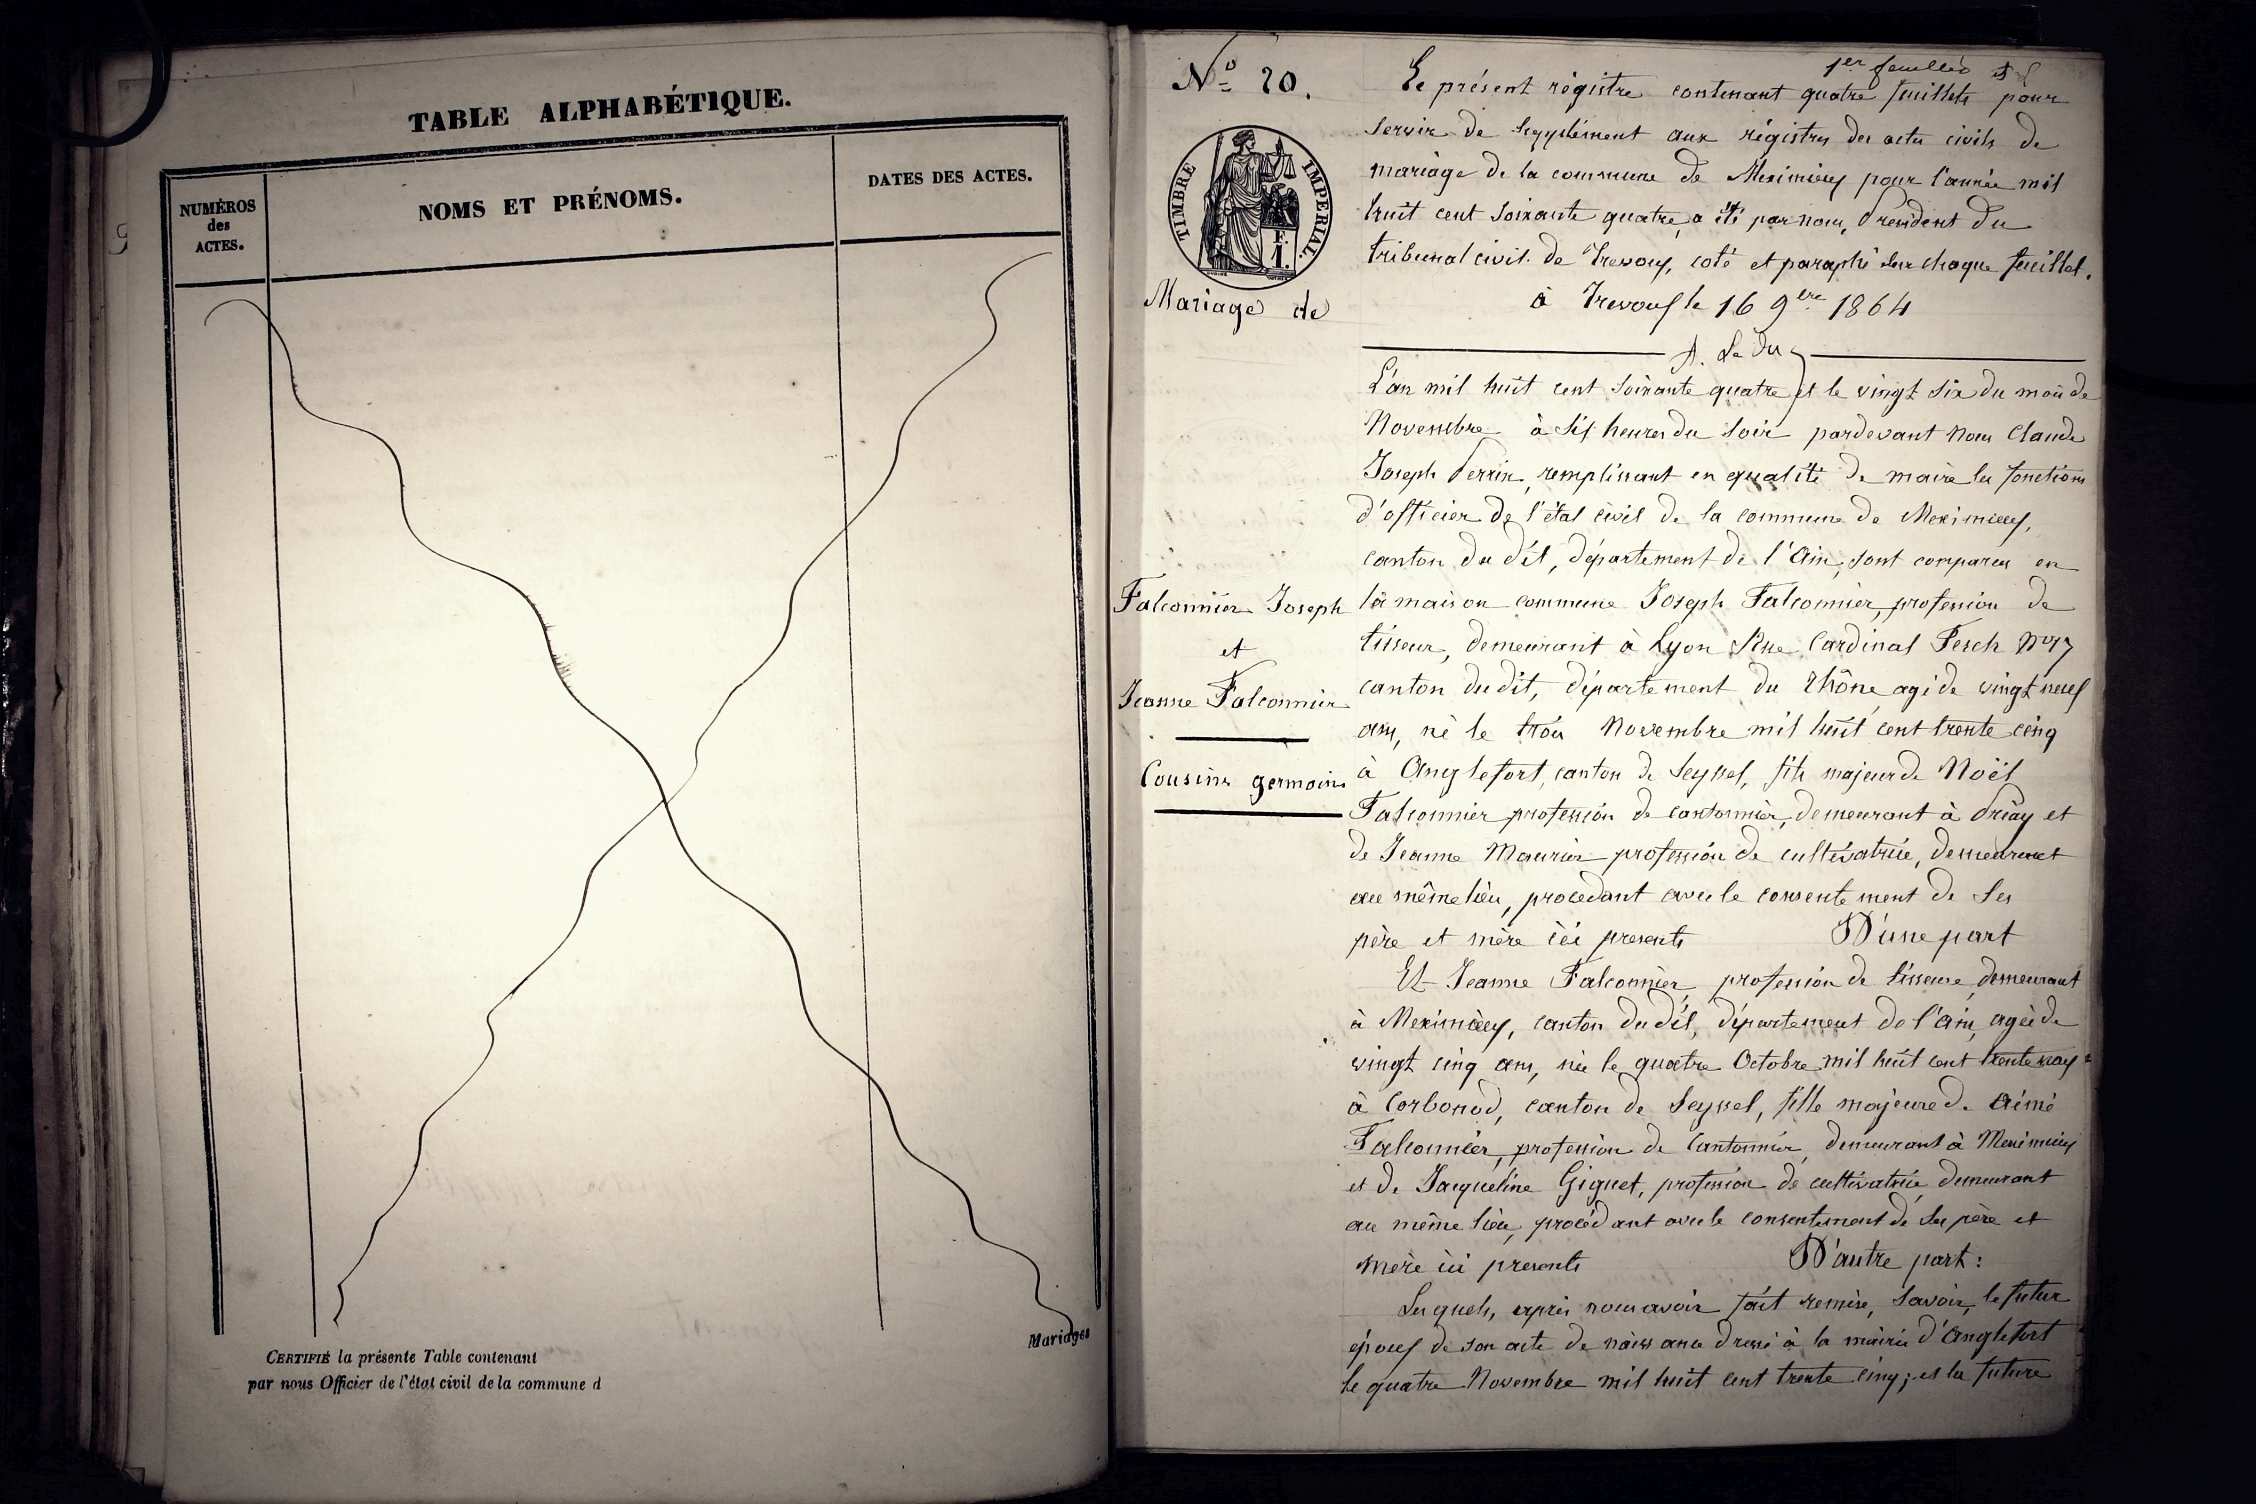 TABLE ALPHABÉTIQUE.
NUMÉROS
des
ACTES.
NOMS ET PRÉNOMS.
DATES DES ACTES.
Mariages
CERTIFIÉ la présente Table contenant
par nous Officier de l'état civil de la commune d
No 20.
TIMBRE IMPERIAL.
F.
1.
Mariage de
Falconnier Joseph
et
Jeanne Falconnier
Cousins germains
1er feuillet
Le présent régistre contenant quatre feuillets pour
servir de supplément aux régistres des actes civils de
mariage de la commune de Meximieux pour l'année mil
huit cent soixante quatre, a été par nous, Président du
tribunal civil de Trevoux, coté et paraphé sur chaque feuillet.
à Trevoux le 16 9bre 1864
L'an mil huit cent soixante quatre et le vingt six du mois de
Novembre à six heures du soir pardevant nous Claude
Joseph Perrin, remplissant en qualité de maire les fonctions
d'officier de l'état civil de la commune de Meximieux,
canton du dit, département de l'Ain, sont comparus en
la maison commune Joseph Falconnier, profession de
tisseur, demeurant à Lyon Rue Cardinal Fesch No 17
canton du dit, département du Rhône, agé de vingt neuf
ans, né le trois Novembre mil huit cent trente cinq
à Anglefort, canton de Seyssel, fils majeur de Noël
Falconnier profession de cantonnier, demeurant à Priay et
de Jeanne Maurier profession de cultivatrice, demeurant
au même lieu, procédant avec le consentement de ses
père et mère ici presents D'une part
Et Jeanne Falconnier, profession de tisseuse, demeurant
à Meximieux, canton du dit, département de l'ain, agée de
vingt cinq ans, née le quatre Octobre mil huit cent trente neuf
à Corbonod, canton de Seyssel, fille majeure de Aimé
Falconnier, profession de Cantonnier, demeurant à Meximieux
et de Jacqueline Giguet, profession de cultivatrice demeurant
au même lieu, procédant avec le consentement de ses père et
mère ici presents D'autre part:
Lesquels, après nous avoir fait remise, savoir, le futur
époux de son acte de naissance dressé à la mairie d'Anglefort
le quatre Novembre mil huit cent trente cinq; et la future